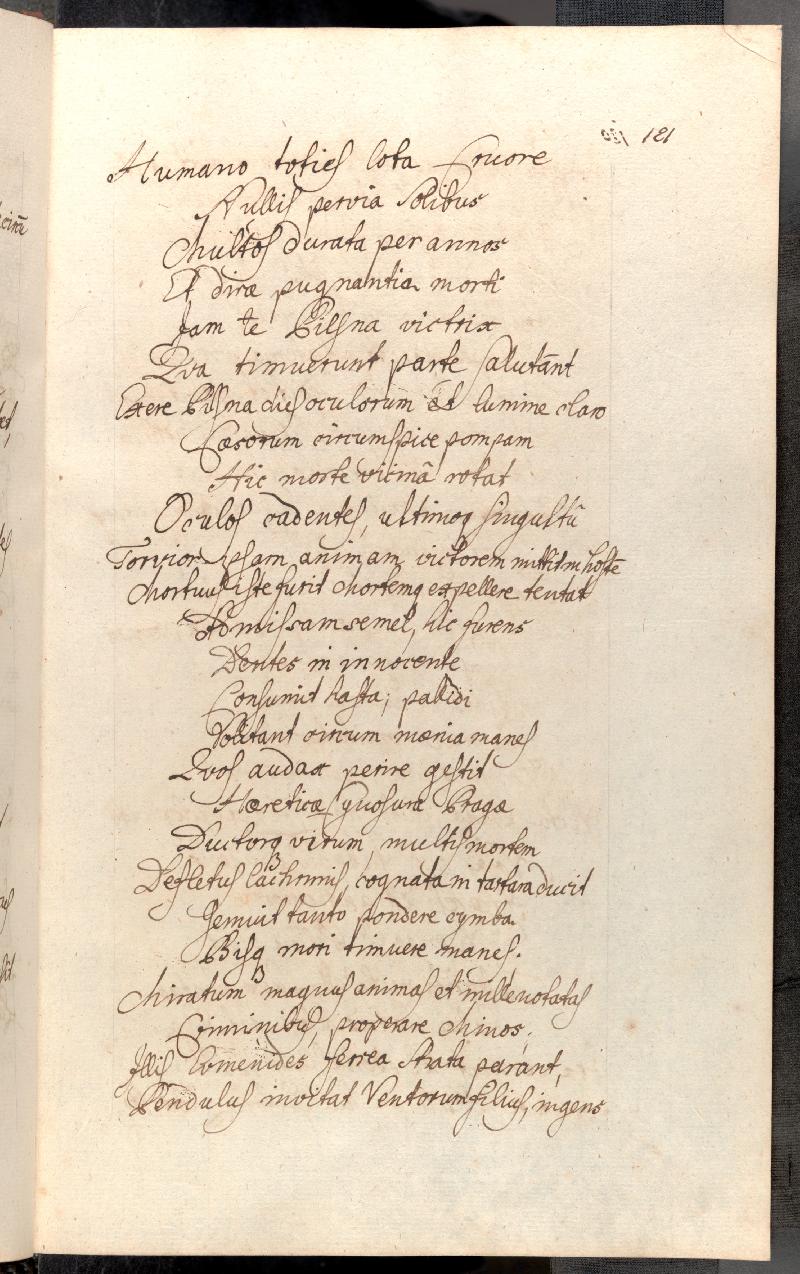 121
Humano toties lota Cruore
Nullis pervia Solibus
Multos durata per annos
Et diræ pugnantia morti
Jam te Pilsna victrix
Qva timuerunt parte salutant
Exere Pilsna dies oculorum et lumine claro
Cæsorum circumspice pompam
Hic morte vicinâ rotat
Oculos cadentes, ultimoq singultu
Torvior ipsam animam victorem mittit in hostē
Mortuus iste furit Mortemq expellere tentat
Admissam semel, hic furens
Dentes in innocente
Consumit hasta; pallidi
Volitant circum mœnia manes
Qvos audax perire gestit
Hæreticæ Cynosura Pragæ
Ductorq virum, multis mortem
Defletus lachrimis, cognata in tartara ducit
Gemuit tanto pondere cymba
Bisq mori timuere manes.
Miratum magnus animas et mille notatas
Criminibus, properare Minos,
Illis Eumenides ferrea strata parant,
Pendulus invitat Ventorum filius, ingens